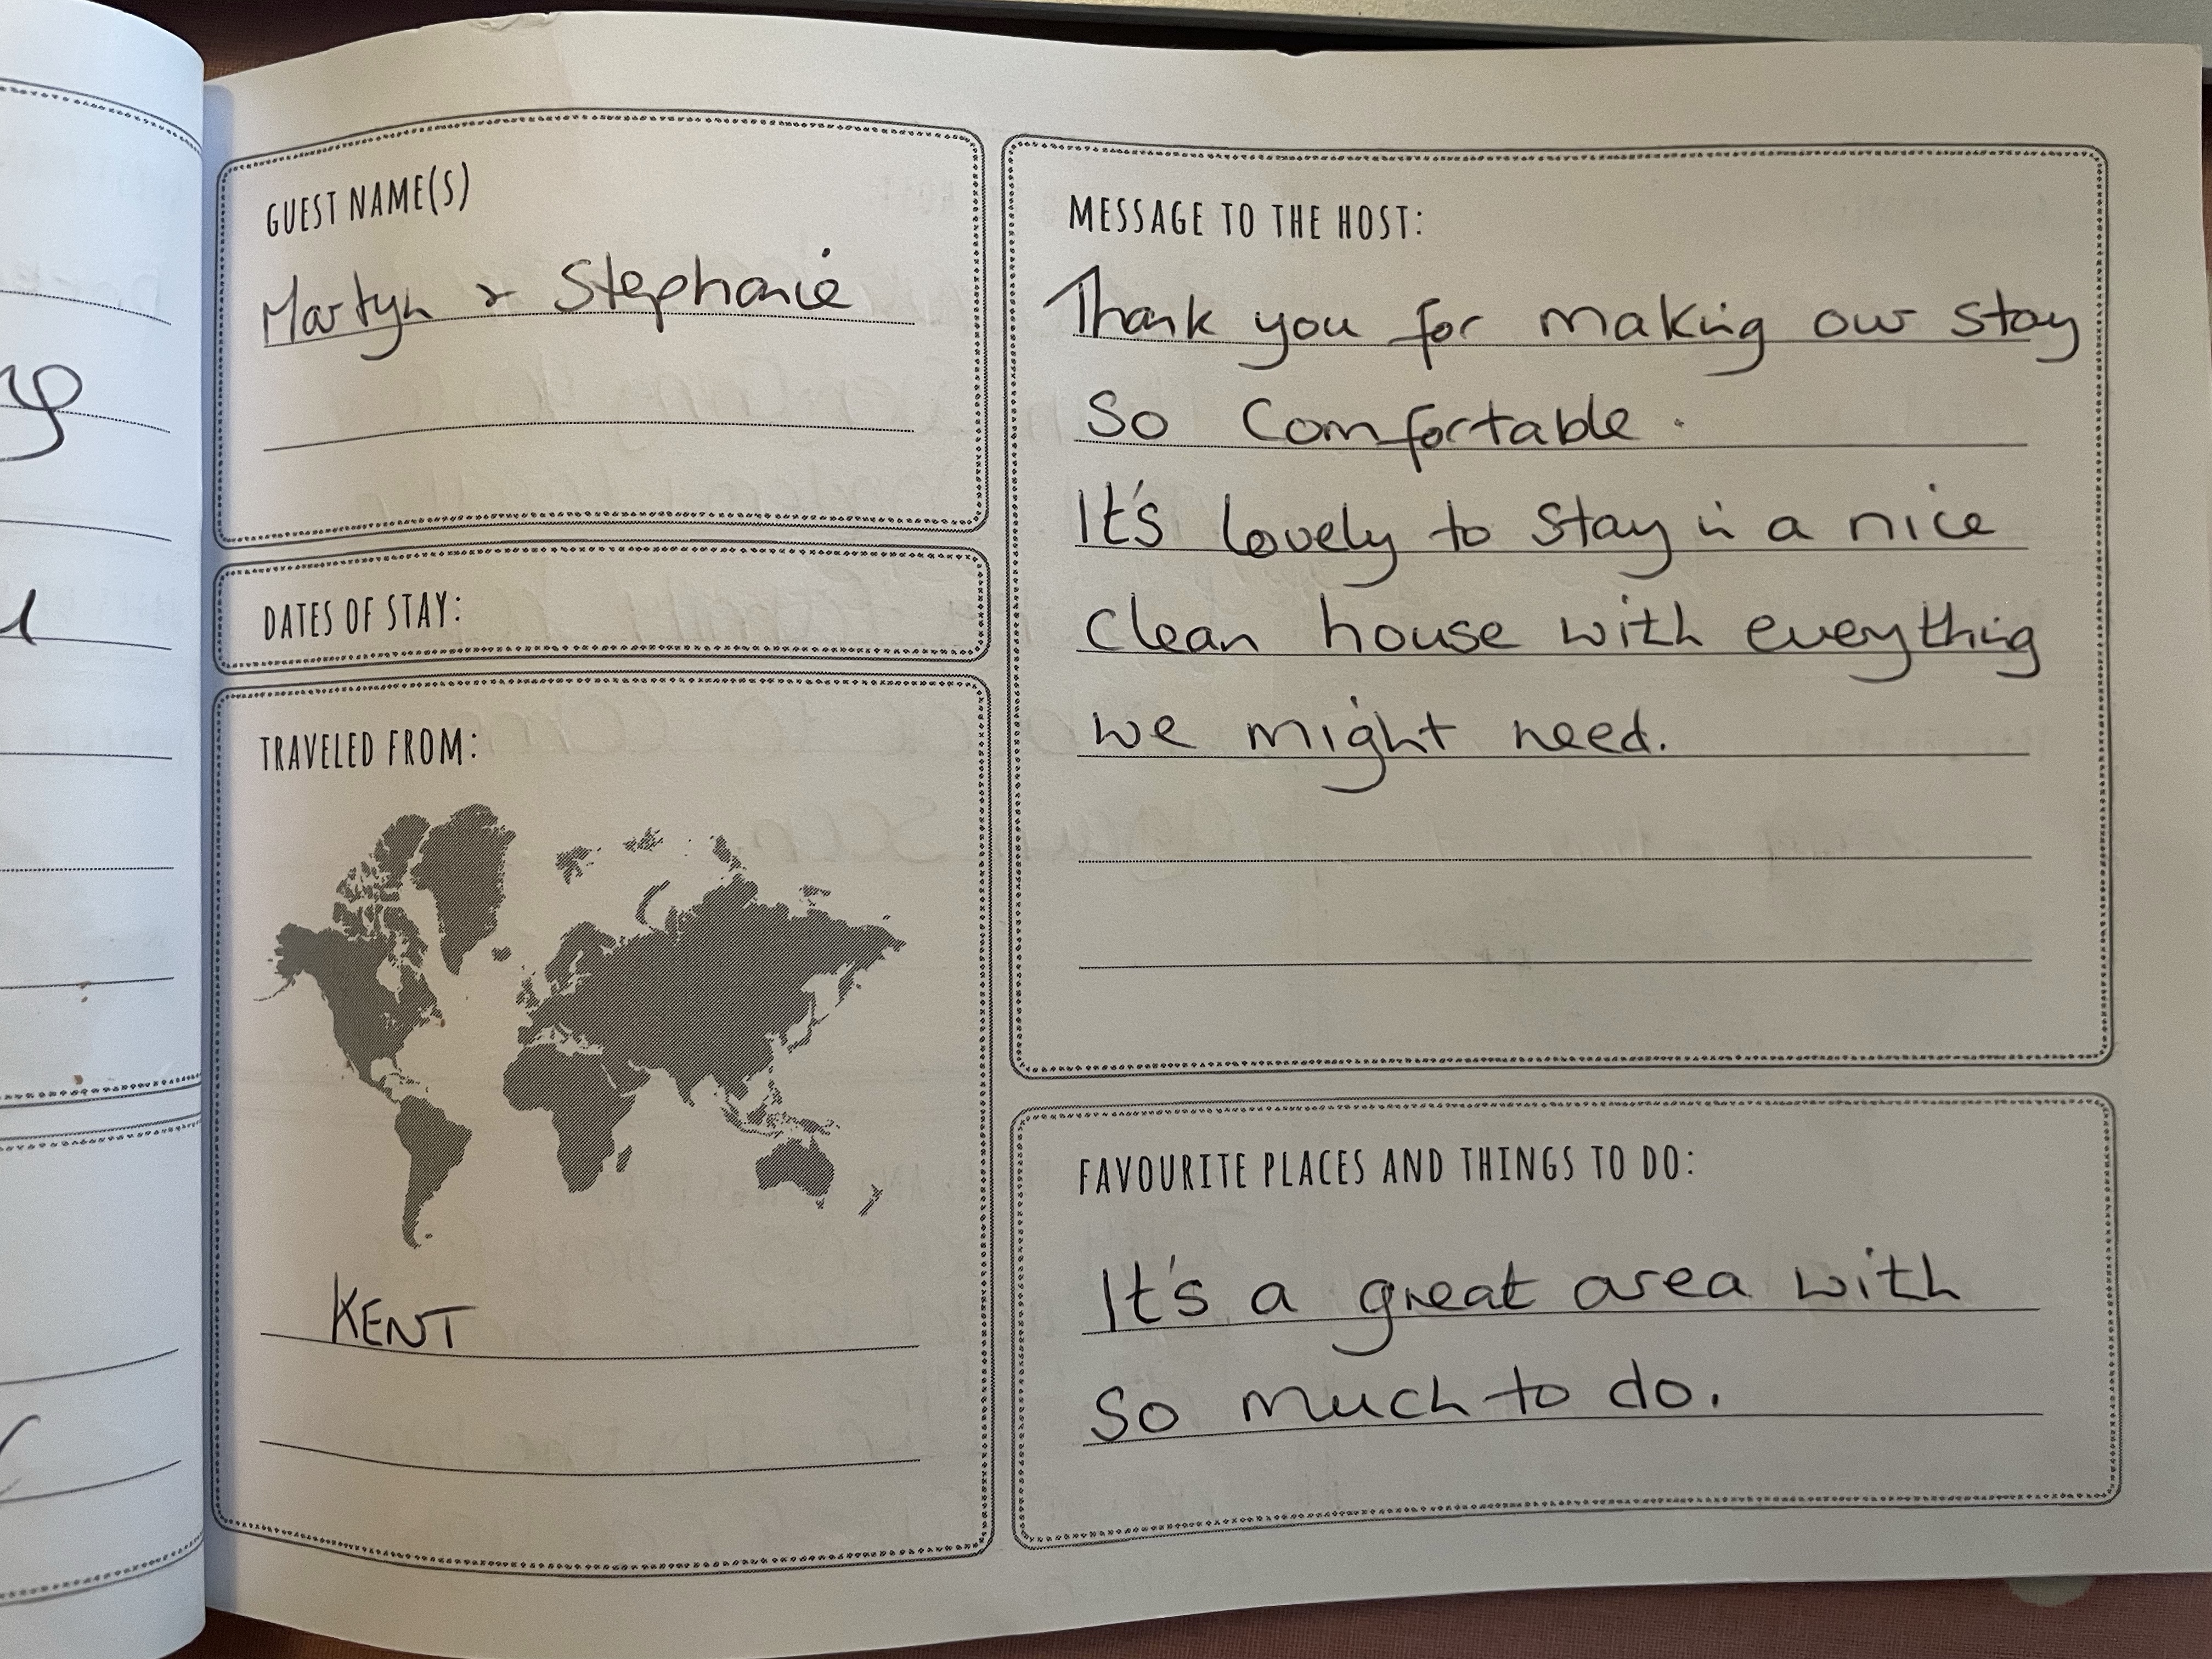 GUEST NAME(S)
Martyn & Stephanie
DATES OF STAY:
TRAVELED FROM:
KENT
MESSAGE TO THE HOST:
Thank you for making our stay
so comfortable.
It's lovely to stay in a nice
clean house with eveything
we might need.
FAVOURITE PLACES AND THINGS TO DO:
It's a great area with
so much to do.